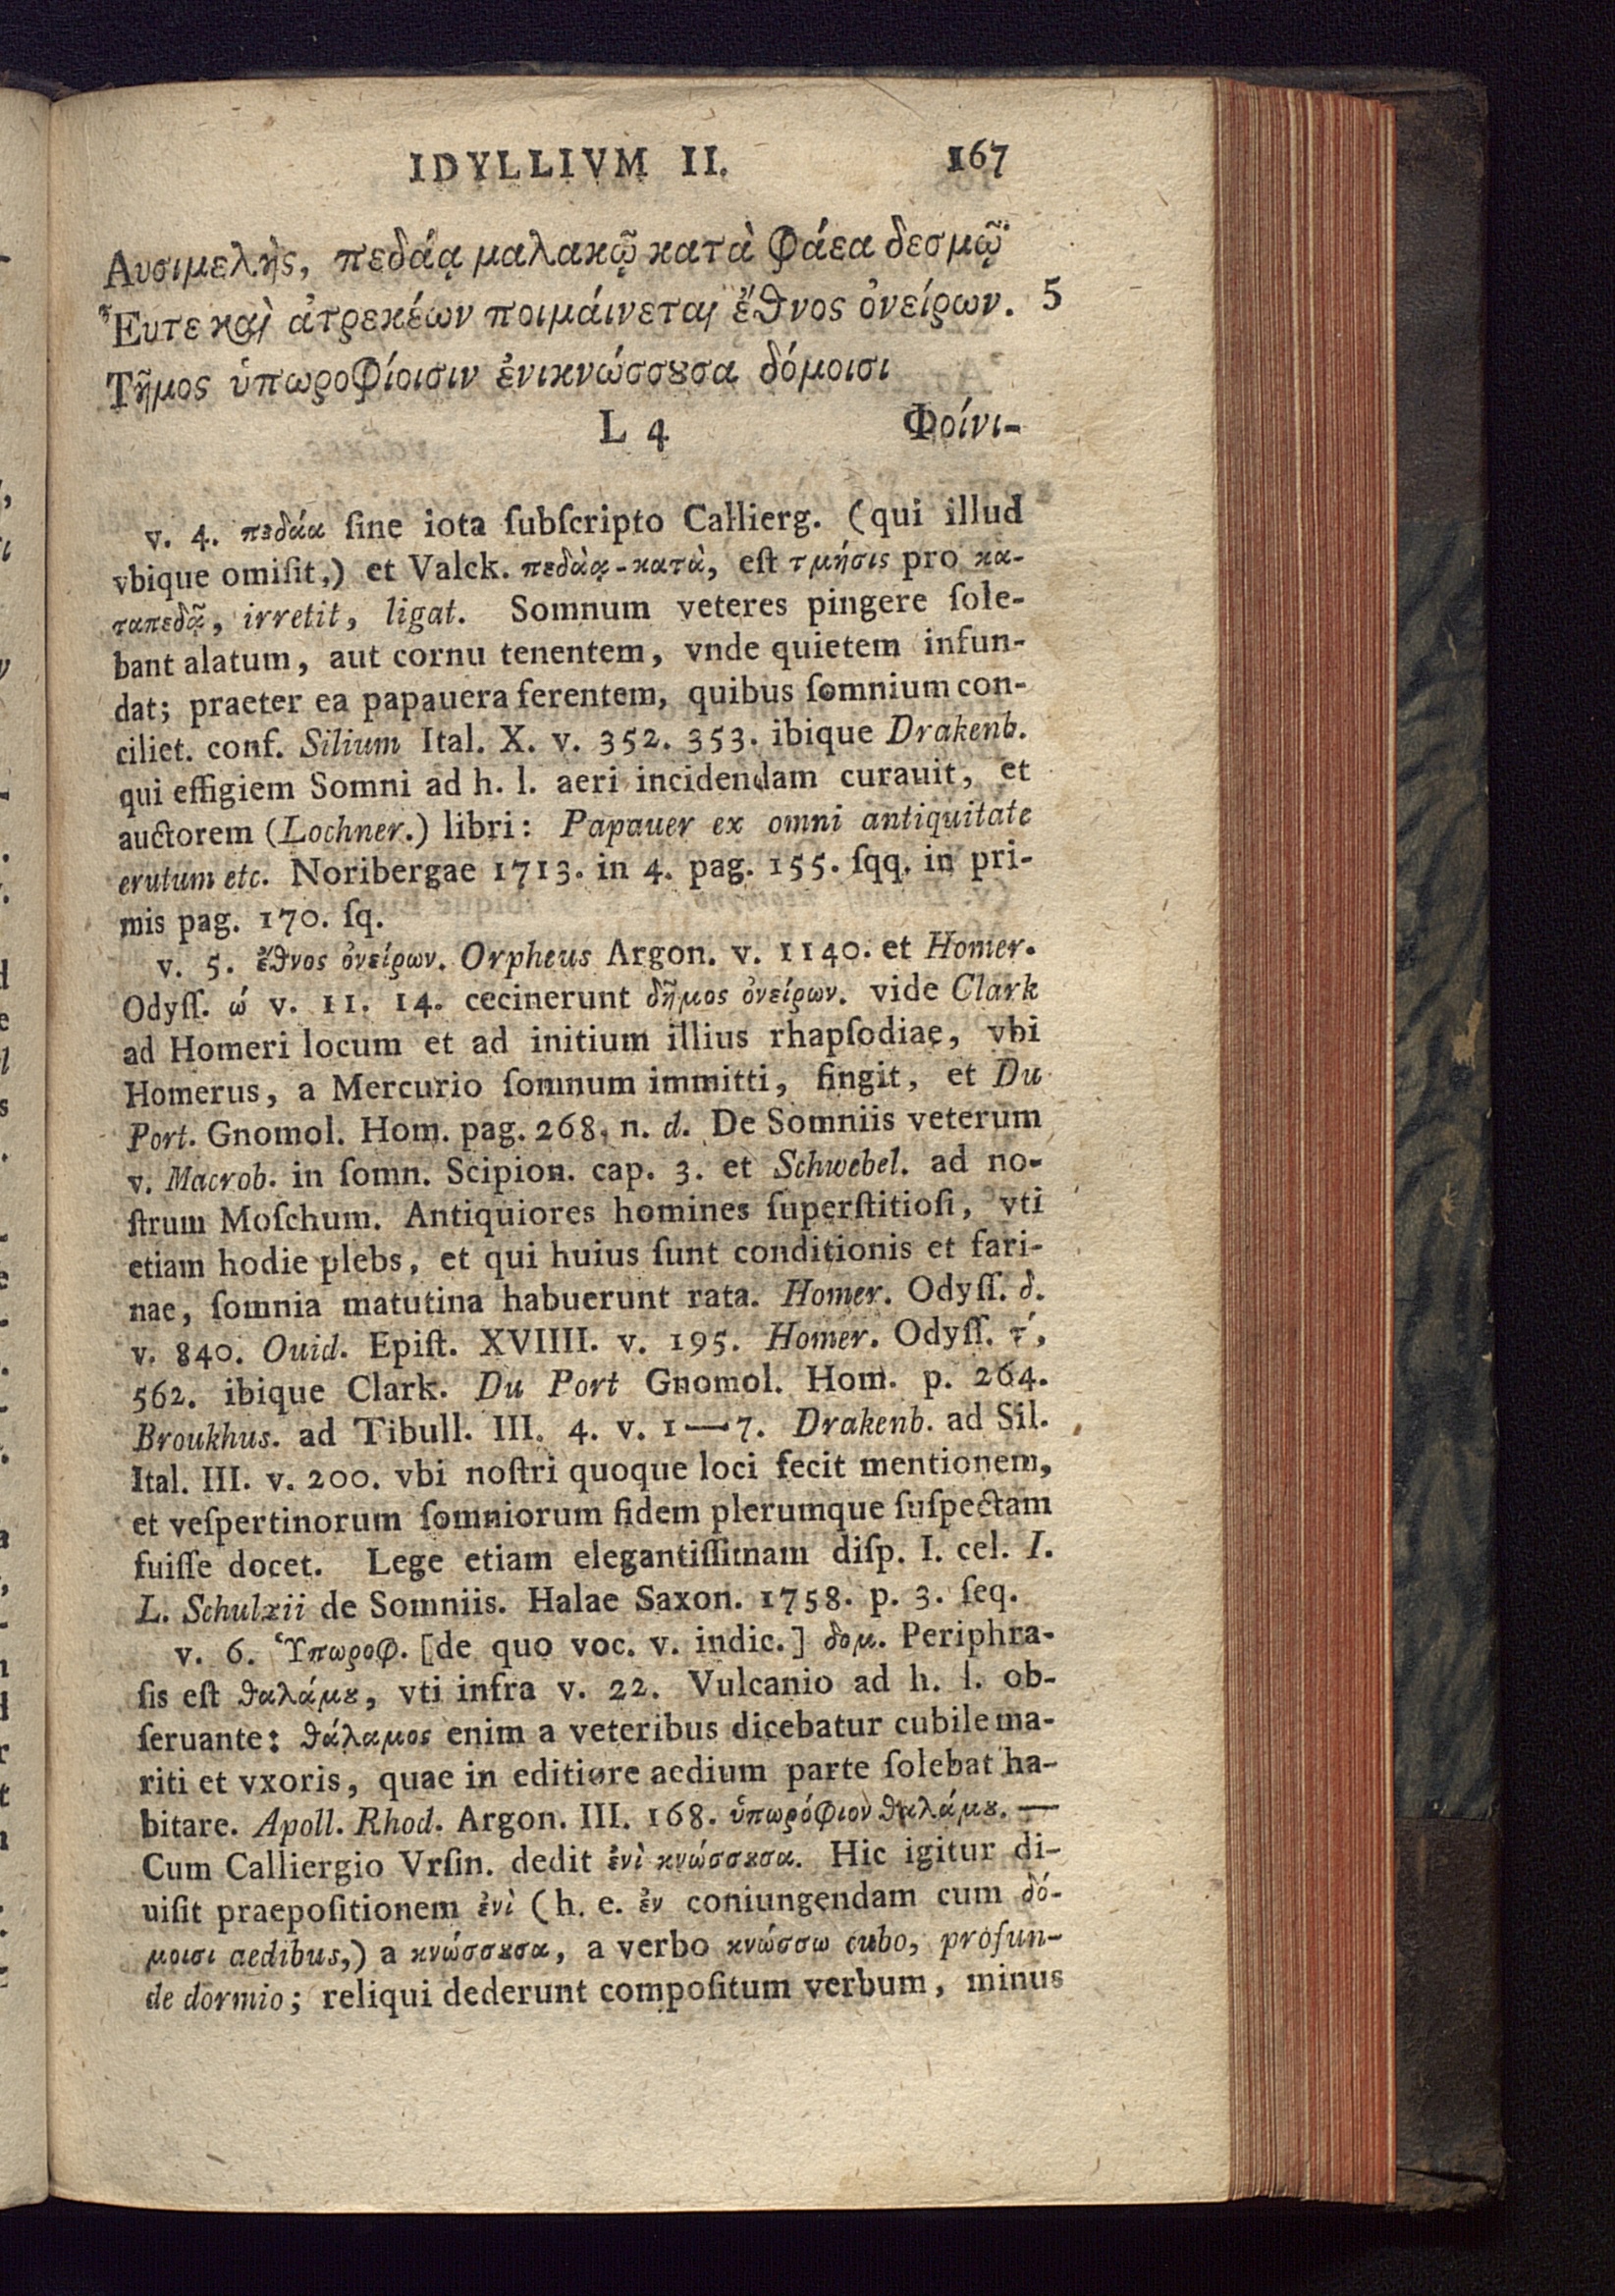 IDYLLIVM II. 167
Λυσιμελὴς, πεδάᾳ μαλακῷ κατὰ φάεα δεσμῷ·
Ἦυτε καὶ ἀτρεκέων ποιμάινεται ἔθνος ὀνείρων. 5
Τῆμος ὑπωροφίοισιν ἐνικνώσσȣσα δόμοισι
L 4 Φοίνι-
v. 4. πεδάα ſine iota ſubſcripto Callierg. (qui illud
vbique omiſit,) et Valck. πεδάᾳ-κατὰ, eſt τμήσις pro κα-
ταπεδᾷ, irretit, ligat. Somnum veteres pingere ſole-
bant alatum, aut cornu tenentem, vnde quietem infun-
dat; praeter ea papauera ferentem, quibus ſomnium con-
ciliet. conf. Silium Ital. X. v. 352. 353. ibique Drakenb.
qui effigiem Somni ad h. l. aeri incidendam curauit, et
auctorem (Lochner.) libri: Papauer ex omni antiquitate
erutum etc. Noribergae 1713. in 4. pag. 155. ſqq. in pri-
mis pag. 170. ſq.
v. 5. ἔθνος ὀνείρων. Orpheus Argon. v. 1140. et Homer.
Odyſſ. ώ v. 11. 14. cecinerunt δῆμος ὀνείρων. vide Clark
ad Homeri locum et ad initium illius rhapſodiae, vbi
Homerus, a Mercurio ſomnum immitti, fingit, et Du
Port. Gnomol. Hom. pag. 268. n. d. De Somniis veterum
v. Macrob. in ſomn. Scipion. cap. 3. et Schwebel. ad no-
ſtrum Moſchum. Antiquiores homines ſuperſtitioſi, vti
etiam hodie plebs, et qui huius ſunt conditionis et fari-
nae, ſomnia matutina habuerunt rata. Homer. Odyſſ. δ.
v. 840. Ouid. Epiſt. XVIIII. v. 195. Homer. Odyſſ. τ΄,
562. ibique Clark. Du Port Gnomol. Hom. p. 264.
Broukhus. ad Tibull. III. 4. v. 1—7. Drakenb. ad Sil.
Ital. III. v. 200. vbi noſtri quoque loci fecit mentionem,
et veſpertinorum ſomniorum fidem plerumque ſuſpectam
fuiſſe docet. Lege etiam elegantiſſimam diſp. I. cel. I.
L. Schulzii de Somniis. Halae Saxon. 1758. p. 3. ſeq.
v. 6. Ὑπωροφ. [de quo voc. v. indic.] δομ. Periphra-
ſis eſt θαλάμȣ, vti infra v. 22. Vulcanio ad h. l. ob-
ſeruante: θάλαμος enim a veteribus dicebatur cubile ma-
riti et vxoris, quae in editiore aedium parte ſolebat ha-
bitare. Apoll. Rhod. Argon. III. 168. ὑπωρόφιον θαλάμȣ. —
Cum Calliergio Vrſin. dedit ἐνὶ κνώσσȣσα. Hic igitur di-
uiſit praepoſitionem ἐνὶ (h. e. ἐν coniungendam cum δό-
μοισι aedibus,) a κνώσσȣσα, a verbo κνώσσω cubo, profun-
de dormio; reliqui dederunt compoſitum verbum, minus